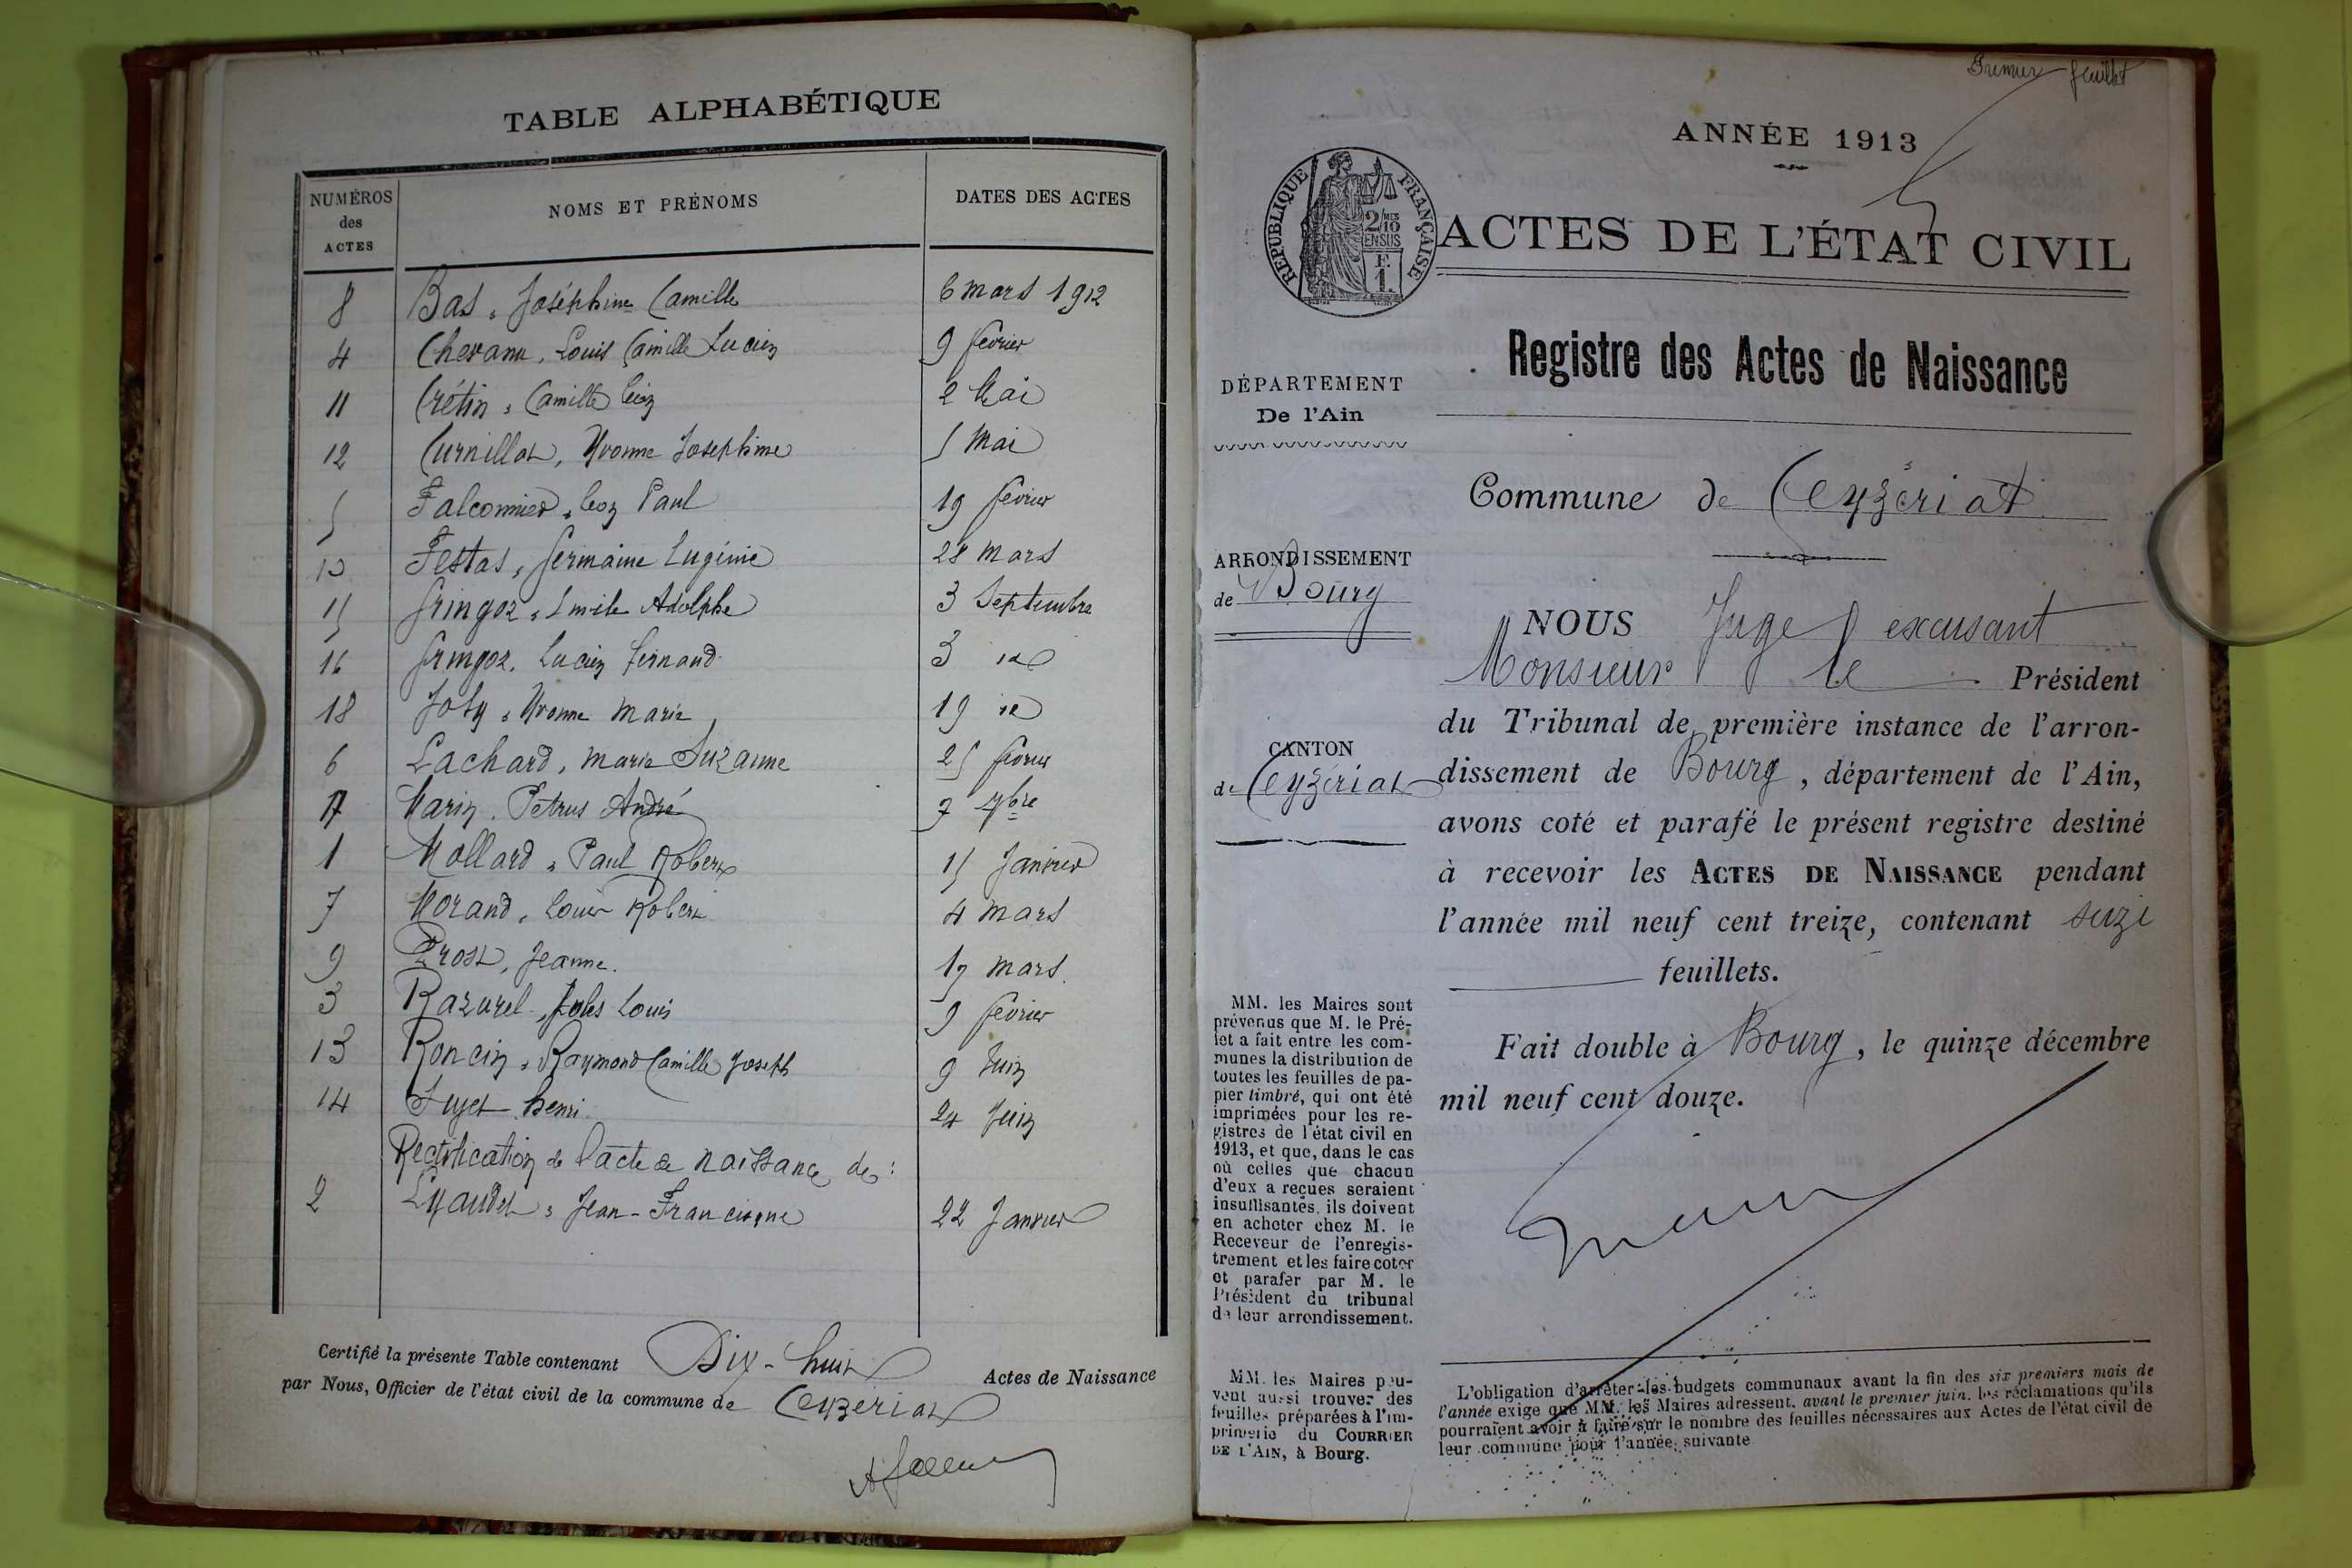 TABLE ALPHABÉTIQUE
NUMÉROS des ACTES NOMS ET PRÉNOMS DATES DES ACTES
8 Bas, Joséphine Camille 6 mars 1912
4 Louis Camille Lucien 9 février
11 Crétin, Camille Léon 2 Mai
12 Curnillon, Yvonne Josephine 5 Mai
5 Falconnier, Léon Paul 19 février
10 Festas, Germaine Eugénie 28 mars
15 Gringoz, Emile Adolphe 3 Septembre
16 Gringoz, Lucien Fernand 3 id
18 Joly, Yvonne Marie 19 id
6 Lachard, Marie Suzanne 25 février
17 Marin, Petrus André 7 7bre
1 Mollard, Paul Robert 15 Janvier
7 Morand, Louis Robert 4 mars
9 Prost, Jeanne. 17 mars.
3 Razurel, Jules Louis 9 février
13 Roncin, Raymond Camille Joseph 9 Juin
14 Henri 24 Juin
Rectification de l'acte de naissance de :
2 Lyaudet, Jean-Francisque 22 Janvier
Certifié la présente Table contenant Dix-huit Actes de Naissance
par Nous, Officier de l'état civil de la commune de Ceyzeriat
Premier feuillet
ANNÉE 1913
RÉPUBLIQUE FRANÇAISE
2/10MES
EN SUS
F.
1.
ACTES DE L'ÉTAT CIVIL
Registre des Actes de Naissance
DÉPARTEMENT
De l'Ain
Commune de Ceyzériat
ARRONDISSEMENT
de Bourg
CANTON
de Ceyzériat
NOUS Juge excusant
Monsieur le Président
du Tribunal de première instance de l'arron-
dissement de Bourg, département de l'Ain,
avons coté et parafé le présent registre destiné
à recevoir les ACTES DE NAISSANCE pendant
l'année mil neuf cent treize, contenant seize
feuillets.
Fait double à Bourg, le quinze décembre
mil neuf cent douze.
MM. les Maires sont
prévenus que M. le Pré-
fet a fait entre les com-
munes la distribution de
toutes les feuilles de pa-
pier timbré, qui ont été
imprimées pour les re-
gistres de l'état civil en
1913, et que, dans le cas
où celles que chacun
d'eux a reçues seraient
insuffisantes, ils doivent
en acheter chez M. le
Receveur de l'enregis-
trement et les faire coter
et parafer par M. le
Président du tribunal
de leur arrondissement.
MM. les Maires peu-
vent aussi trouver des
feuilles préparées à l'im-
primerie du COURRIER
DE L'AIN, à Bourg.
L'obligation d'arrêter les budgets communaux avant la fin des six premiers mois de
l'année exige que MM. les Maires adressent, avant le premier juin, les réclamations qu'ils
pourraient avoir à faire sur le nombre des feuilles nécessaires aux Actes de l'état civil de
leur commune pour l'année suivante